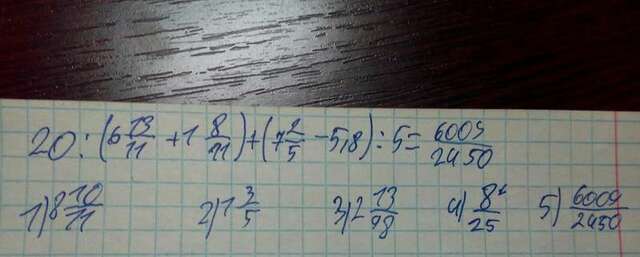 20:(6 13/11 + 1 8/11) + (7 2/5 - 5,8) : 5 = 6009/2450
1) 8 10/11 2) 1 3/5 3) 2 13/98 4) 8/25 5) 6009/2450